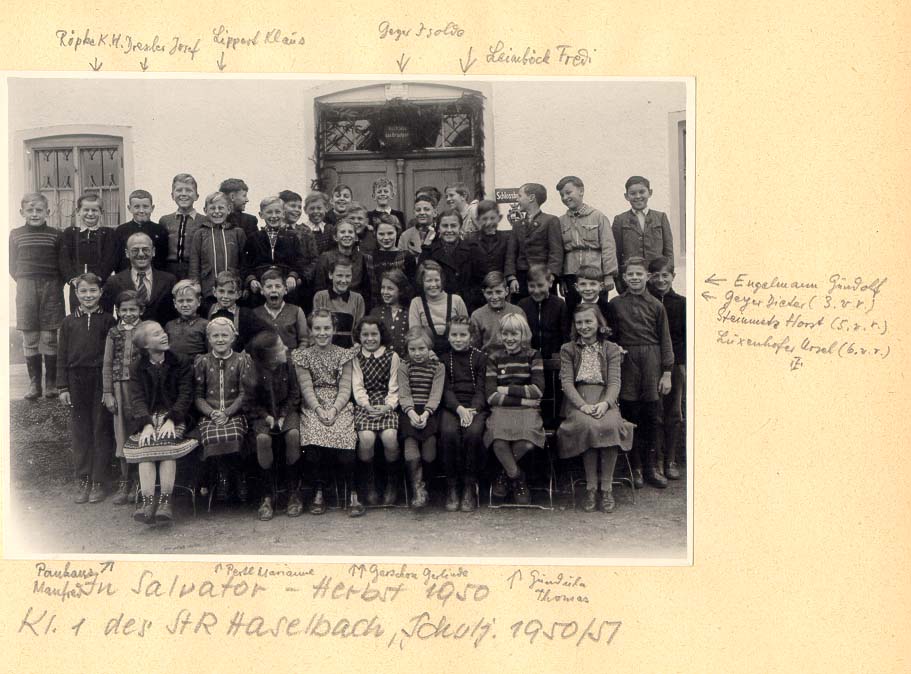 Röpke K.H. Drexler Josef
Lippert Klaus
Geyer Isolde
Leimböck Fredi
Schloss
← Engelmann Gündolf
← Geyer Dieter (3. v. r.)
Steinmetz Horst (5. v. r.)
Luxenhofer Ursel (6. v. r.)
Panhans
Manfred
↑ Pertl Marianne
↑↑ Gerschon Gerlinde
↑ Gundula
Thomas
In Salvator - Herbst 1950
Kl. 1 des StR Haselbach, Schulj. 1950/51